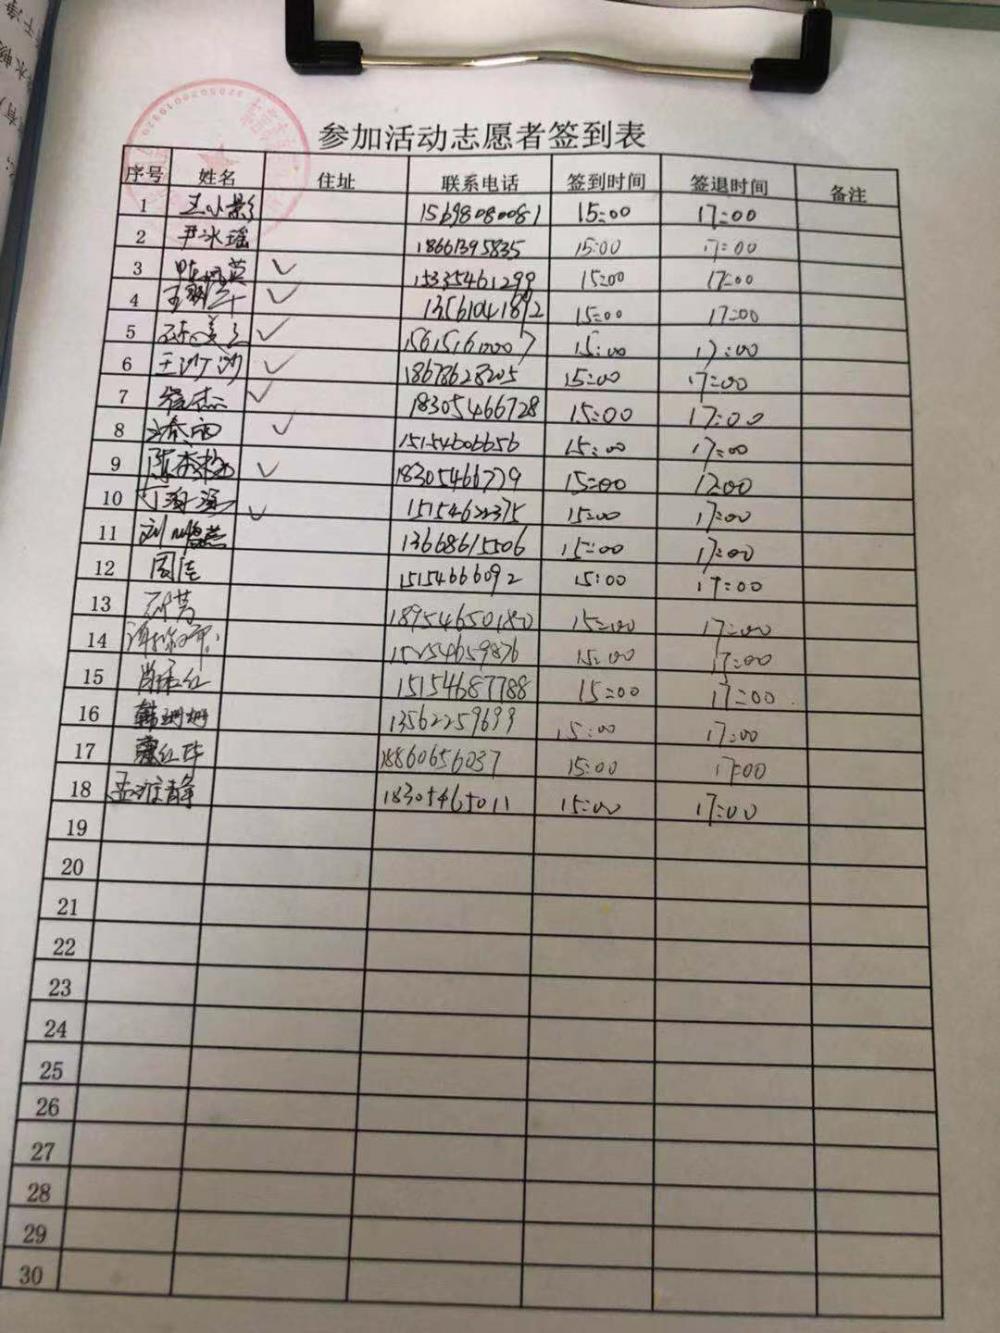 参加活动志愿者签到表
序号 姓名 住址 联系电话 签到时间 签退时间 备注
1 王小影 15698080081 15:00 17:00
2 尹冰瑶 18661395835 15:00 17:00
3 15335461299 15:00 17:00
4 13561041892 15:00 17:00
5 156151610007 15:00 17:00
6 王沙沙 18678628205 15:00 17:00
7 徐杰 18305466728 15:00 17:00
8 潘雨 15154606656 15:00 17:00
9 18305466779 15:00 17:00
10 15154622375 15:00 17:00
11 13668615506 15:00 17:00
12 周佳 15154666092 15:00 17:00
13 18954650180 15:00 17:00
14 15254659876 15:00 17:00
15 15154687788 15:00 17:00
16 韩珊珊 13562259699 15:00 17:00
17 18860656037 15:00 17:00
18 孟维静 18305465011 15:00 17:00
19
20
21
22
23
24
25
26
27
28
29
30